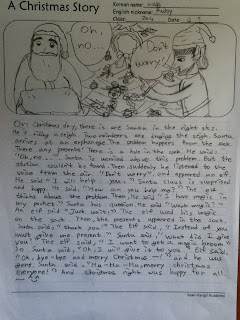 A Christmas Story
Korean name:
English nickname: Ruby
Class: 204 Date
Oh, no...
Don't worry!
On Christmas day, there is are Santa in the night sky.
He is riding a sleigh. Two reindeers are engage the sleigh. Santa
arrives at an orphanage. The problem happens from the sack.
There any presents! There is a hole in the sack. He said,
"Oh, no..." Santa is worries above this problem. But the
solution couldn't be found. Then suddenly he listened to the
voice from the air. "Don't worry", and appeared an elf.
He said "I will help you." Santa Claus is surprised
and happy. He said, "How can you help me?" The elf
thinks about the problem. Then, He said "I have magic in
my pocket." Santa has question. He said "What magic?"
An elf said "Just wait!" The elf used his magic
on the spot. Then, the presents appeared in the sack.
Santa said, "thank you!" The elf said, "Instead of you
must give me present." Santa said, "What did I give
you?" The elf said, "I want to get a magic broom."
So Santa said, "Oh, I will give it to you." Elf said,
"Ok, bye-bye and merry Christmas~!" and he was
gone. Santa said "Ha ha ha~ Hamerry christmas
Everyone!" And Christmas night was happy for all.
Avan Hangil Academy